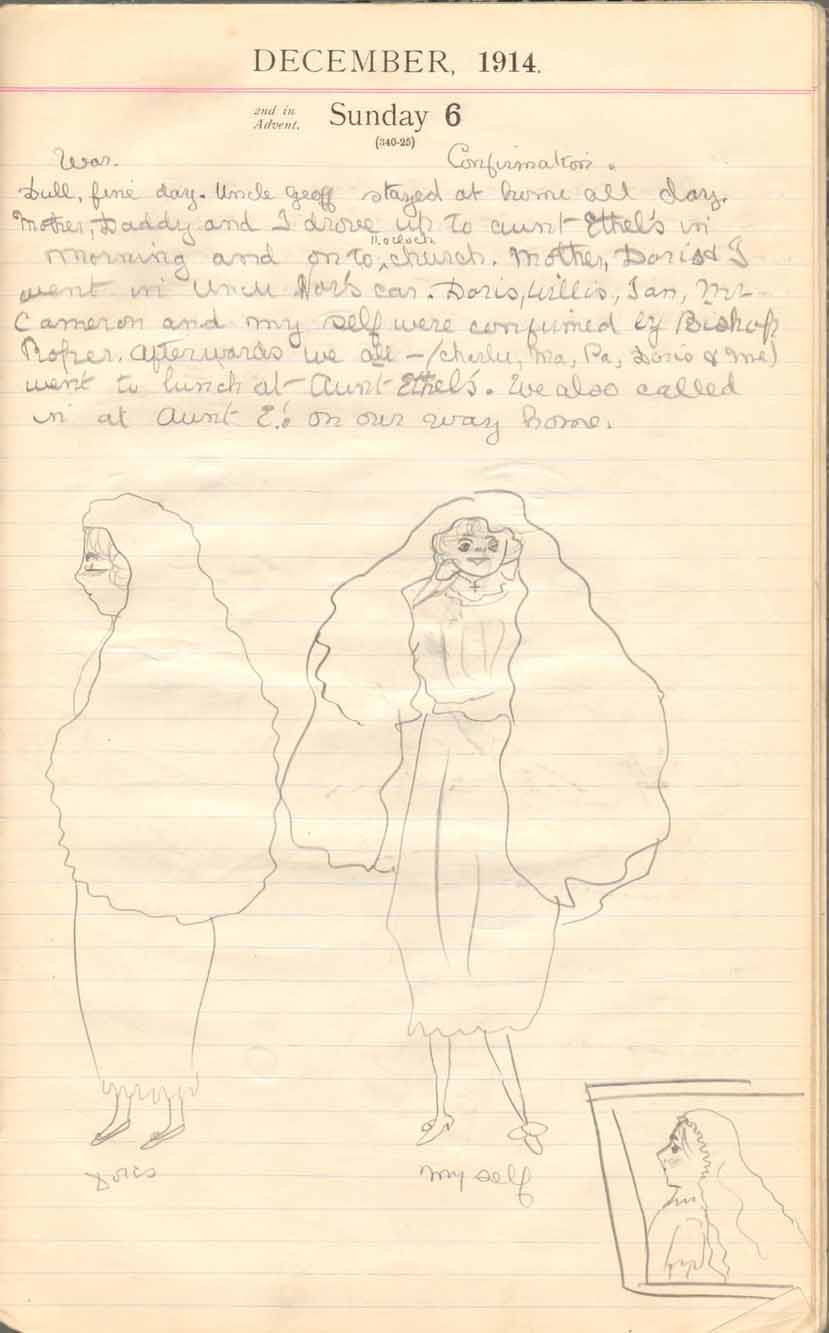 DECEMBER, 1914.
2nd in
Advent.
Sunday 6
(340-25)
War. Confirmation.
Dull, fine day. Uncle Geoff stayed at home all day.
Mother, Daddy and I drove up to aunt Ethel's in
morning and on to 11.oclock church. Mother, Doris & I
went in Uncle car. Doris, Willis, Ian, Mr
Cameron and my self were confirmed by Bishop
Roper. Afterwards we all - (Charlie, Ma, Pa, Doris & me)
went to lunch at Aunt Ethel's. We also called
in at Aunt E's. on our way home.
Doris
my self